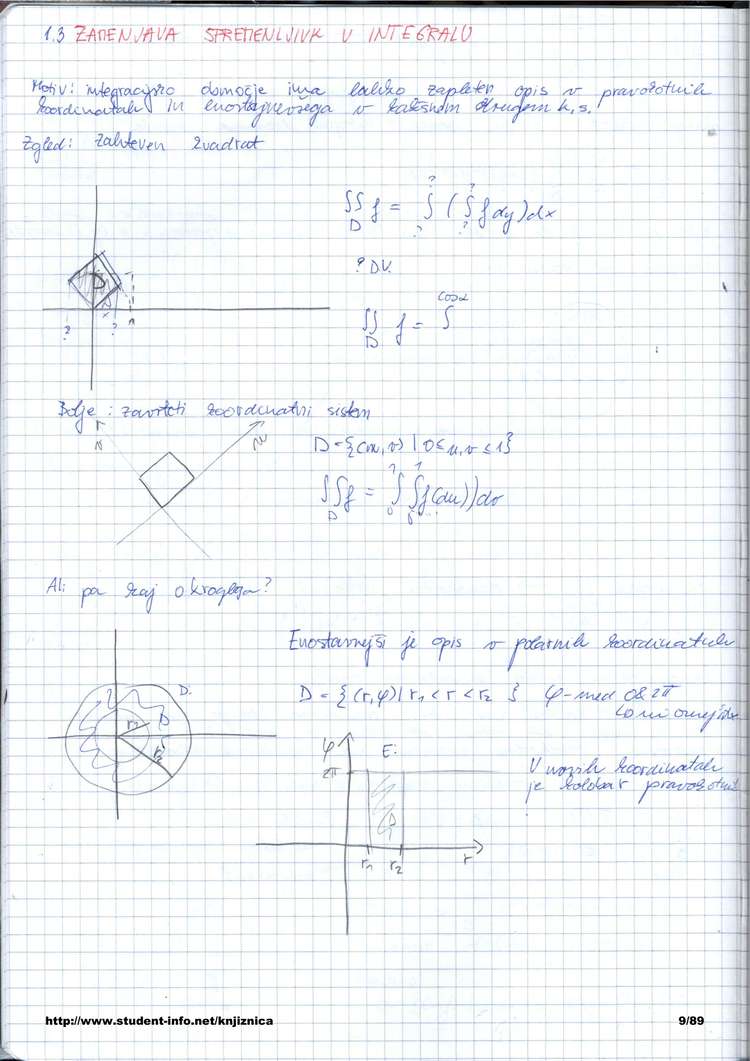 1.3 ZAMENJAVA SPREMENLJIVK V INTEGRALU
Motiv: integracijsko domočje ima lahko zapleten opis v pravokotnih
koordinatah in enostavnejšega v kakšnem drugem k.s.
Zgled: zahteven kvadrat
∫∫ f = ∫ ( ∫ f dy ) dx
D ? ? ? ?
? D.V.
∫∫ f = ∫ cosα
D
D
? ? 1
Bolje: zavrteti koordinatni sistem
D = {(u,v) | 0 ≤ u,v ≤ 1}
∫∫ f = ∫ ∫ f(du))dv
D
Ali pa kaj okroglega?
Enostavnejši je opis v polarnih koordinatah
D = {(r,φ) | r₁ < r < r₂ } φ-med 0 & 2π
D.
r₁
r₂
φ E:
2π
V novih koordinatah
je kolobar pravokotnik
r₁ r₂ r
http://www.student-info.net/knjiznica 9/89